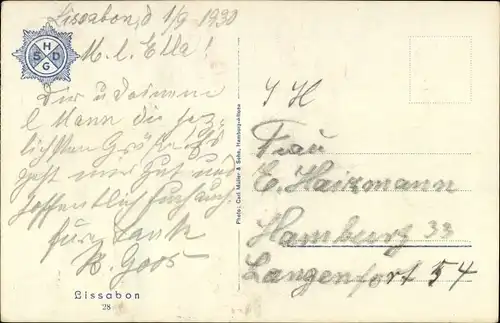 Lissabon, d 1/9 1930
H
S D
G
M. l. Ella!
Dir u Deinem
l Mann die herz-
lichsten Grüße. Es
geht mir gut und
hoffentlich Euch auch
Dank
H. Goos
Lissabon
28
Photo: Carl Müller & Sohn, Hamburg-Altona
I H
Frau
E. Haizmann
Hamburg 33
Langenfort 54